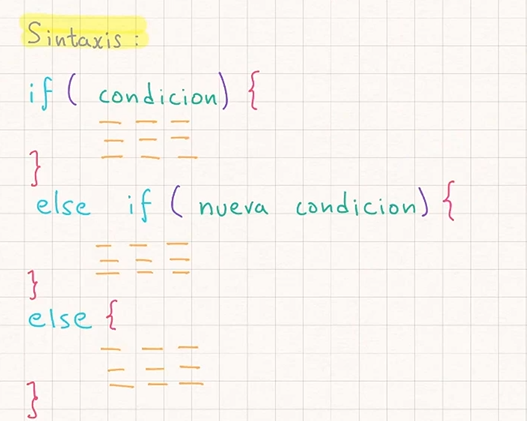 Sintaxis :
if ( condicion) {
}
else if ( nueva condicion) {
}
else {
}